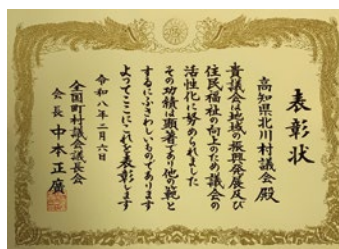 表彰状
高知県北川村議会殿
貴議会は地域の振興発展及び
住民福祉の向上のため議会の
活性化に努められました
その功績は顕著であり他の範と
するにふさわしいものであります
よってここにこれを表彰します
令和八年二月六日
全国町村議会議長会
会長 中本正廣